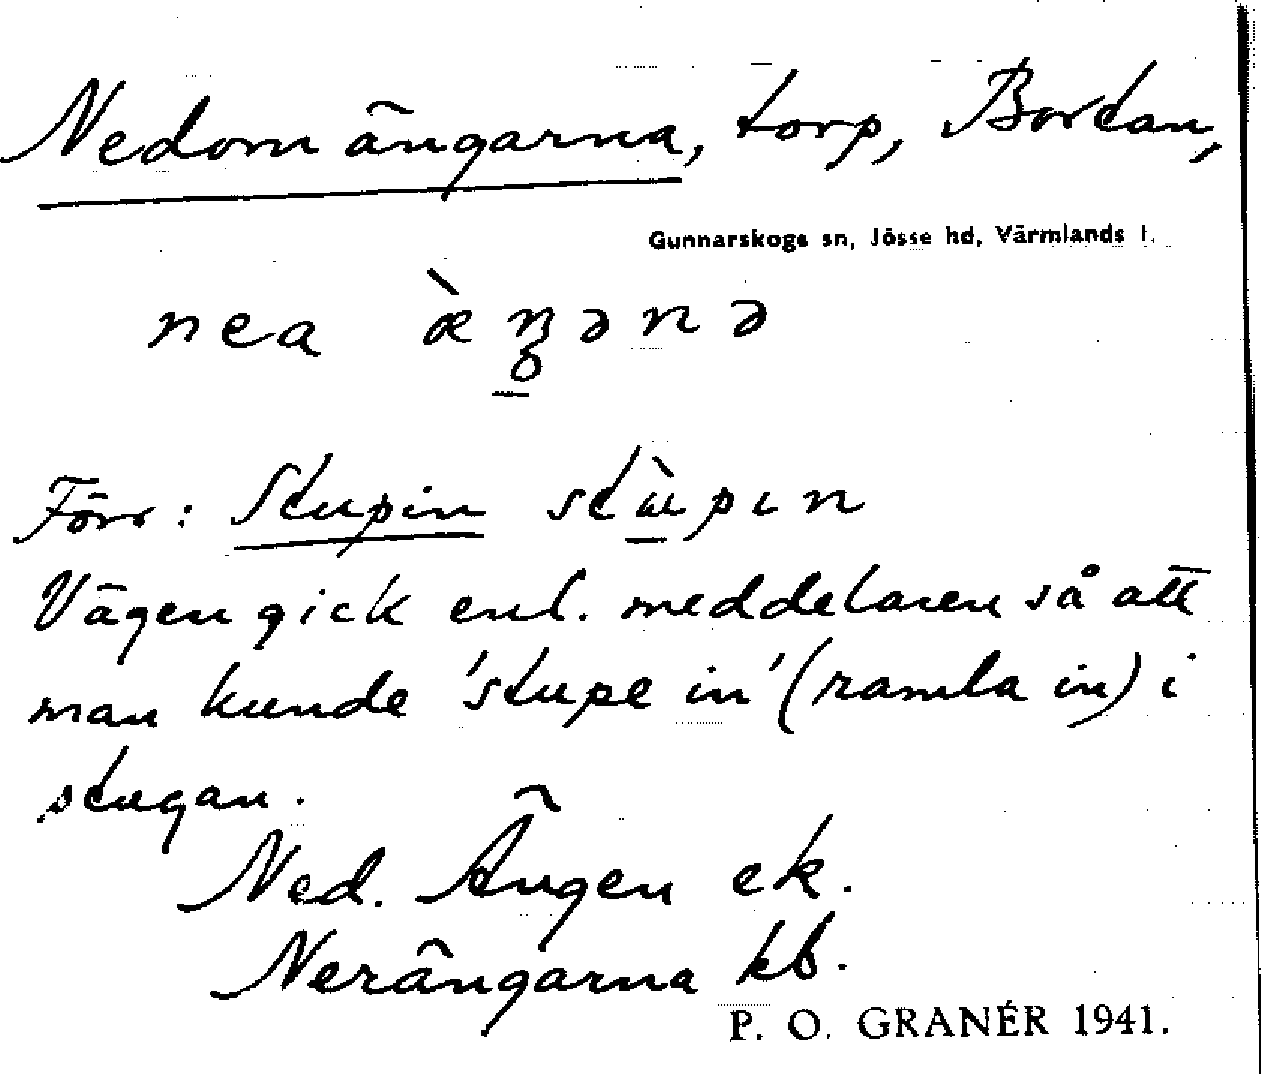 Nedom ängarna, torp, Bortan,
Gunnarskogs sn, Jösse hd, Värmlands l.
nea æ̀ŋənə
Förr: Stupin stɯ̀pɩn
Vägen gick enl. meddelaren så att
man kunde 'stupe in' (ramla in) i
stugan.
Ned. Ängen ek.
Nerängarna kb.
P. O. GRANÉR 1941.